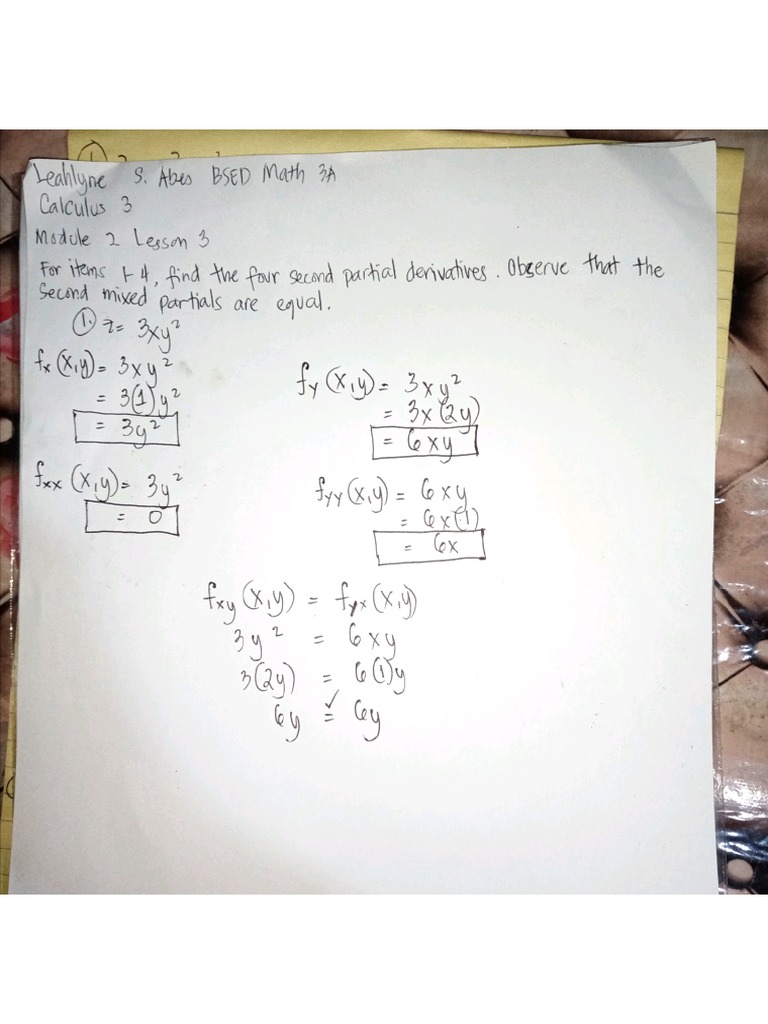 Leahlyne S. Abes BSED Math 3A
Calculus 3
Module 2 Lesson 3
For items 1-4, find the four second partial derivatives. Observe that the
second mixed partials are equal.
①. z = 3xy²
fx (x,y) = 3xy²
= 3(1)y²
= 3y²
fy (x,y) = 3xy²
= 3x(2y)
= 6xy
fxx (x,y) = 3y²
= 0
fyy (x,y) = 6xy
= 6x(1)
= 6x
fxy (x,y) = fyx (x,y)
3y² = 6xy
3(2y) = 6(1)y
6y =✓ 6y